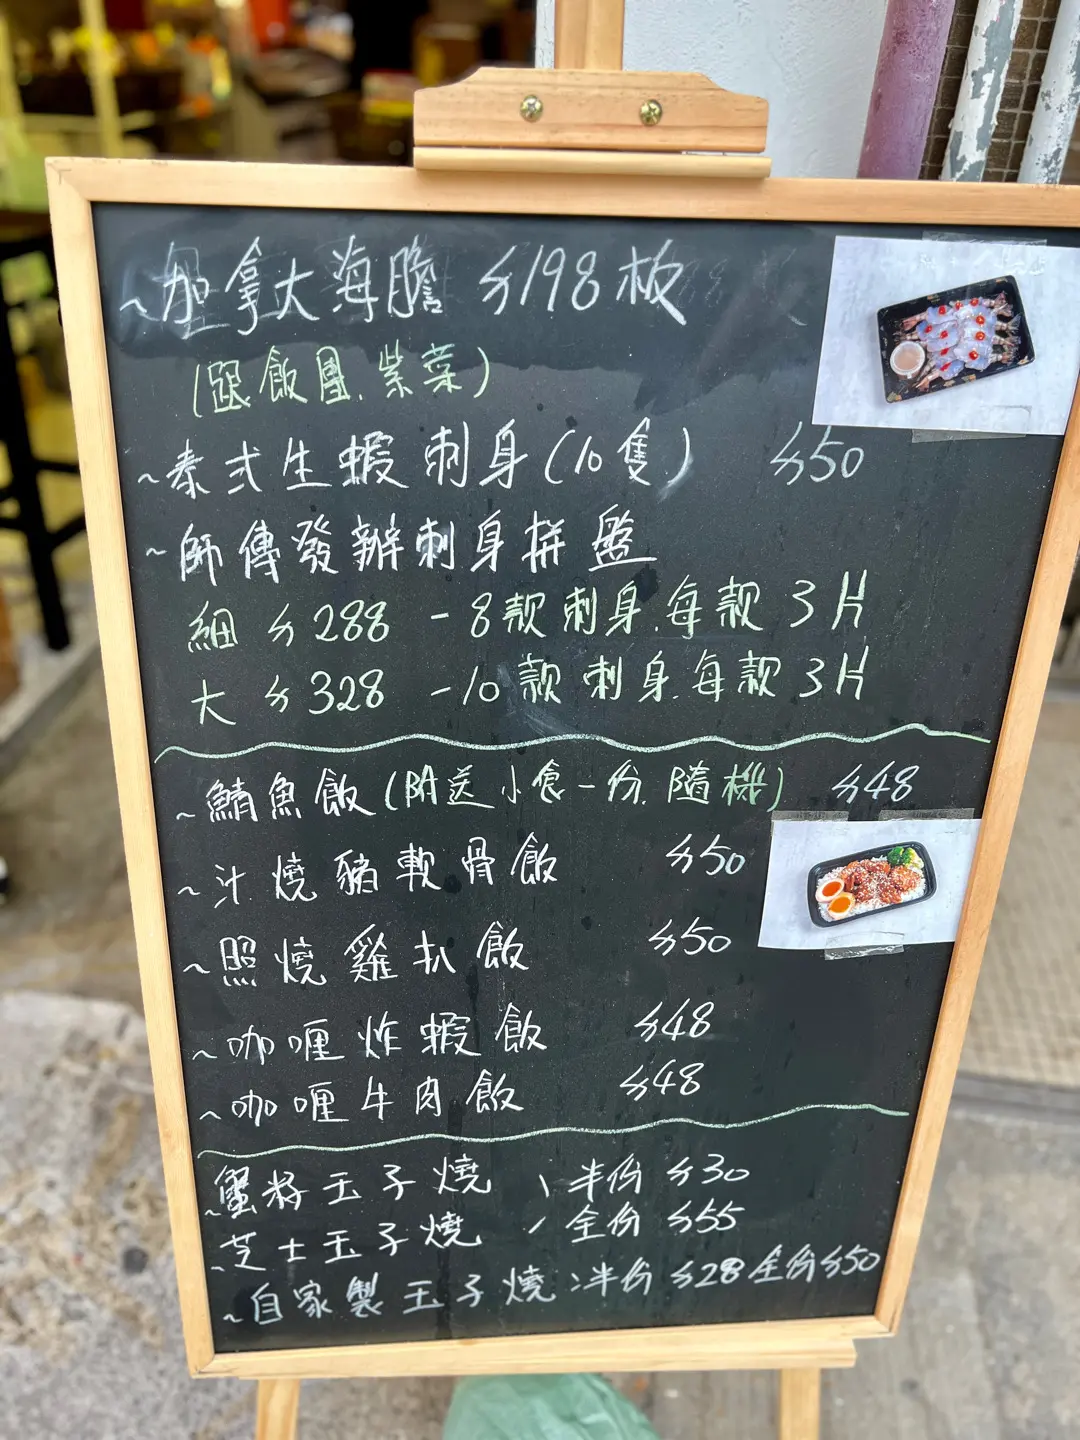 ~加拿大海膽 $198板
(跟飯團.紫菜)
~泰式生蝦刺身(10隻) $50
~師傅發辦刺身拼盤
細 $288 - 8款刺身.每款3片
大 $328 - 10款刺身.每款3片
~鯖魚飯(附送小食一份.隨機) $48
~汁燒豬軟骨飯 $50
~照燒雞扒飯 $50
~咖喱炸蝦飯 $48
~咖喱牛肉飯 $48
~蟹籽玉子燒 、半份 $30
~芝士玉子燒 ⼂全份 $55
~自家製玉子燒:半份 $28 全份 $50